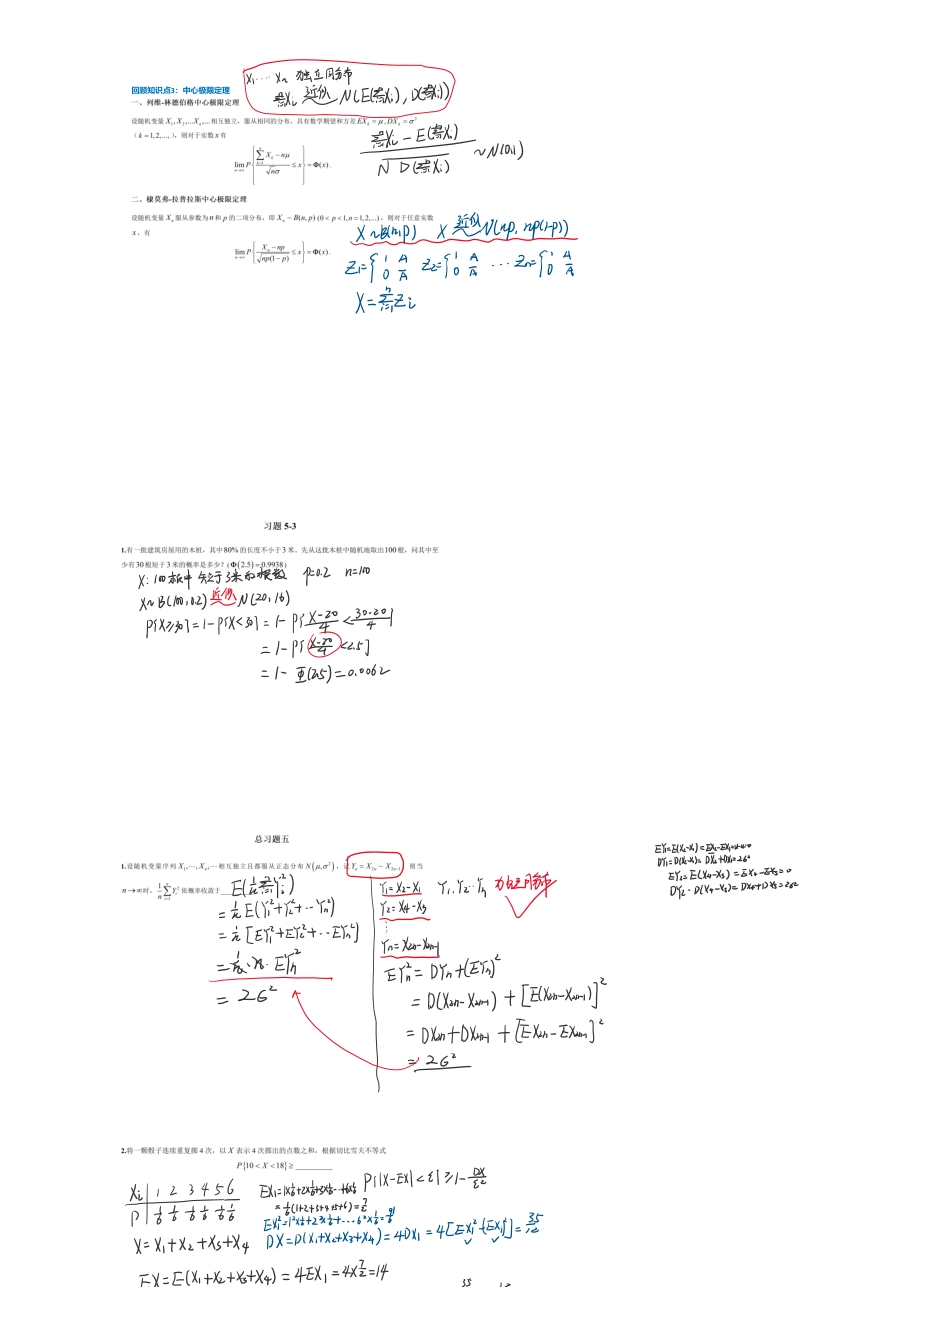 X₁ ···· Xn 独立同分布
回顾知识点3：中心极限定理
ΣXi 近似 N(E(ΣXi), D(ΣXi))
一、列维-林德伯格中心极限定理
设随机变量 X₁, X₂,...Xₙ,... 相互独立，服从相同的分布，具有数学期望和方差 EXₖ = μ, DXₖ = σ²
（k = 1,2,...,），则对于实数 x 有
lim n→∞ P{ (∑ₖ₌₁ⁿ Xₖ − nμ) / (√nσ) ≤ x } = Φ(x).
(ΣXi − E(ΣXi)) / √D(ΣXi) ~ N(0,1)
二、棣莫弗-拉普拉斯中心极限定理
设随机变量 Xₙ 服从参数为 n 和 p 的二项分布，即 Xₙ ~ B(n, p) (0 < p < 1, n = 1,2,...)，则对于任意实数
x，有
X~B(n,p) X 近似 N(np, np(1-p))
lim n→∞ P{ (Xₙ − np) / √(np(1−p)) ≤ x } = Φ(x).
Z₁={1 A 0 Ā Z₂={1 A 0 Ā ... Zn={1 A 0 Ā
X=∑ᵢ₌₁ⁿ Zi
习题 5-3
1.有一批建筑房屋用的木桩，其中80% 的长度不小于 3 米，先从这批木桩中随机地取出100 根，问其中至
少有30 根短于 3 米的概率是多少？(Φ(2.5) = 0.9938)
X: 100根中 短于3米的根数 p=0.2 n=100
X~B(100,0.2) 近似 N(20,16)
P{X≥30}=1-P{X<30}=1-P{(X-20)/4<(30-20)/4}
=1-P{(X-20)/4<2.5}
=1-Φ(2.5)=0.0062
总习题五
1.设随机变量序列 X₁,⋯,Xₙ,⋯ 相互独立且都服从正态分布 N(μ,σ²)，记 Yₙ = X₂ₙ − X₂ₙ₋₁ 则当
n→∞ 时，(1/n)∑ᵢ₌₁ⁿ Yᵢ² 依概率收敛于
E((1/n)∑ᵢ₌₁ⁿ Yi²)
=1/n E(Y₁²+Y₂²+···Yn²)
=1/n [EY₁²+EY₂²+···EYn²]
=1/n·n·EYn²
=2σ²
Y₁=X₂-X₁ Y₁,Y₂···Yn 独立同分布
Y₂=X₄-X₃
Yn=X2n-X2n-1
EYn²=DYn+(EYn)²
=D(X2n-X2n-1)+[E(X2n-X2n-1)]²
=DX2n+DX2n-1+[EX2n-EX2n-1]²
=2σ²
EY₁=E(X₂-X₁)=EX₂-EX₁=μ-μ=0
DY₁=D(X₂-X₁)=DX₂+DX₁=2σ²
EY₂=E(X₄-X₃)=EX₄-EX₃=0
DY₂=D(X₄-X₃)=DX₄+DX₃=2σ²
2.将一颗骰子连续重复掷 4 次，以 X 表示 4 次掷出的点数之和，根据切比雪夫不等式
P{10 < X < 18} ≥ ________
Xi | 1 2 3 4 5 6
P | 1/6 1/6 1/6 1/6 1/6 1/6
EX₁=1×1/6+2×1/6+3×1/6···+6×1/6
=1/6(1+2+3+4+5+6)=7/2
P{|X-EX|<ε}≥1-DX/ε²
EX₁²=1²×1/6+2²×1/6+···6²×1/6=91/6
X=X₁+X₂+X₃+X₄
DX=D(X₁+X₂+X₃+X₄)=4DX₁=4[EX₁²-(EX₁)²]=35/3
EX=E(X₁+X₂+X₃+X₄)=4EX₁=4×7/2=14